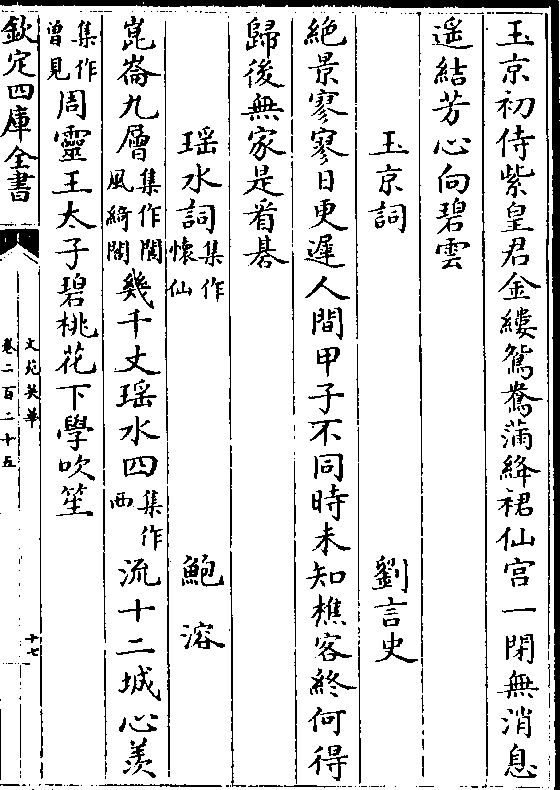 玉京初侍紫皇君金縷鴛鴦滿絳裙仙宫一閉無消息
遥結芳心向碧雲
玉京詞 劉言史
絶景寥寥日更遲人間甲子不同時未知樵客終何得
歸後無家是看碁
瑶水詞集作懐仙 鮑溶
崑崙九層集作閬風綺閣幾千丈瑶水四集作西流十二城心羨
集作曾見周靈王太子碧桃花下學吹笙
欽定四庫全書
文苑英華
卷二百二十五
十七